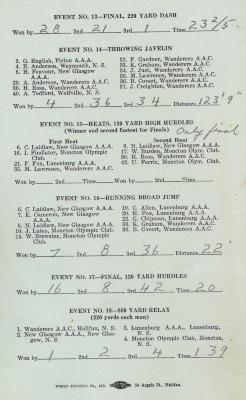 EVENT NO. 13—FINAL, 220 YARD DASH
Won by 28 2nd 21 3rd 1 Time 23 2/5
EVENT NO. 14—THROWING JAVELIN
3. G. English, Pictou A.A.A.
4. E. Anderson, Weymouth, N. S.
8. H. Fenvour, New Glasgow A.A.A.
29. A. Anderson, Wanderers A.A.C.
30. H. Ross, Wanderers A.A.C.
40. A. Tedford, Wolfville, N. S.
32. F. Gardner, Wanderers A.A.C.
33. K. Graham, Wanderers A.A.C.
34. J. Just, Wanderers A.A.C.
35. M. Lawrence, Wanderers A.A.C.
36. B. Covert, Wanderers A.A.C.
37. J. Creighton, Wanderers A.A.C.
Won by 4 2nd 36 3rd 34 Distance 123'9"
EVENT NO. 15—HEATS, 120 YARD HIGH HURDLES
(Winner and second fastest for Finals)
Only final
First Heat
6. C. Laidlaw, New Glasgow A.A.A.
16. J. Findlater, Moncton Olympic Club.
21. F. Fox, Lunenburg A.A.A.
35. M. Lawrence, Wanderers A.A.C.
Second Heat
8. N. Laidlaw, New Glasgow A.A.A.
17. W. Burden, Moncton Olym. Club.
30. H. Ross, Wanderers A.A.C.
42. U. Ferris, Moncton Olym. Club.
Won by 2nd Time Won by 2nd Time
EVENT NO. 16—RUNNING BROAD JUMP
6. C. Laidlaw, New Glasgow A.A.A.
7. E. Cameron, New Glasgow A.A.A.
8. N. Laidlaw, New Glasgow A.A.A.
10. J. Lutes, Moncton Olympic Club.
14. W. Brewster, Moncton Olympic Club.
19. C. Allen, Lunenburg A.A.A.
20. H. Fox, Lunenburg A.A.A.
22. G. Chipman, Lunenburg A.A.A.
33. K. Graham, Wanderers A.A.C.
36. B. Covert, Wanderers A.A.C.
Won by 7 2nd 8 3rd 36 Distance 22
EVENT NO. 17—FINAL, 120 YARD HURDLES
Won by 16 2nd 8 3rd 42 Time 20
EVENT NO. 18—880 YARD RELAY
(220 yards each man)
1. Wanderers A.A.C., Halifax, N. S.
2. New Glasgow A.A.A., New Glasgow, N. S.
3. Lunenburg A.A.A., Lunenburg, N. S.
4. Moncton Olympic Club, Moncton, N. S.
Won by 1 2nd 2 3rd 4 Time 1.39
54 Argyle St., Halifax.